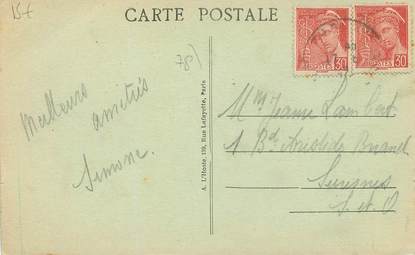 15€
CARTE POSTALE
78)
Meilleures
amitiés
Simone.
A. L'Hoste, 139, Rue Lafayette, Paris
POSTES
30
POSTES
30
Mme Jeanne Lambert
1 Bd Aristide Briand
Suresnes
S. et O